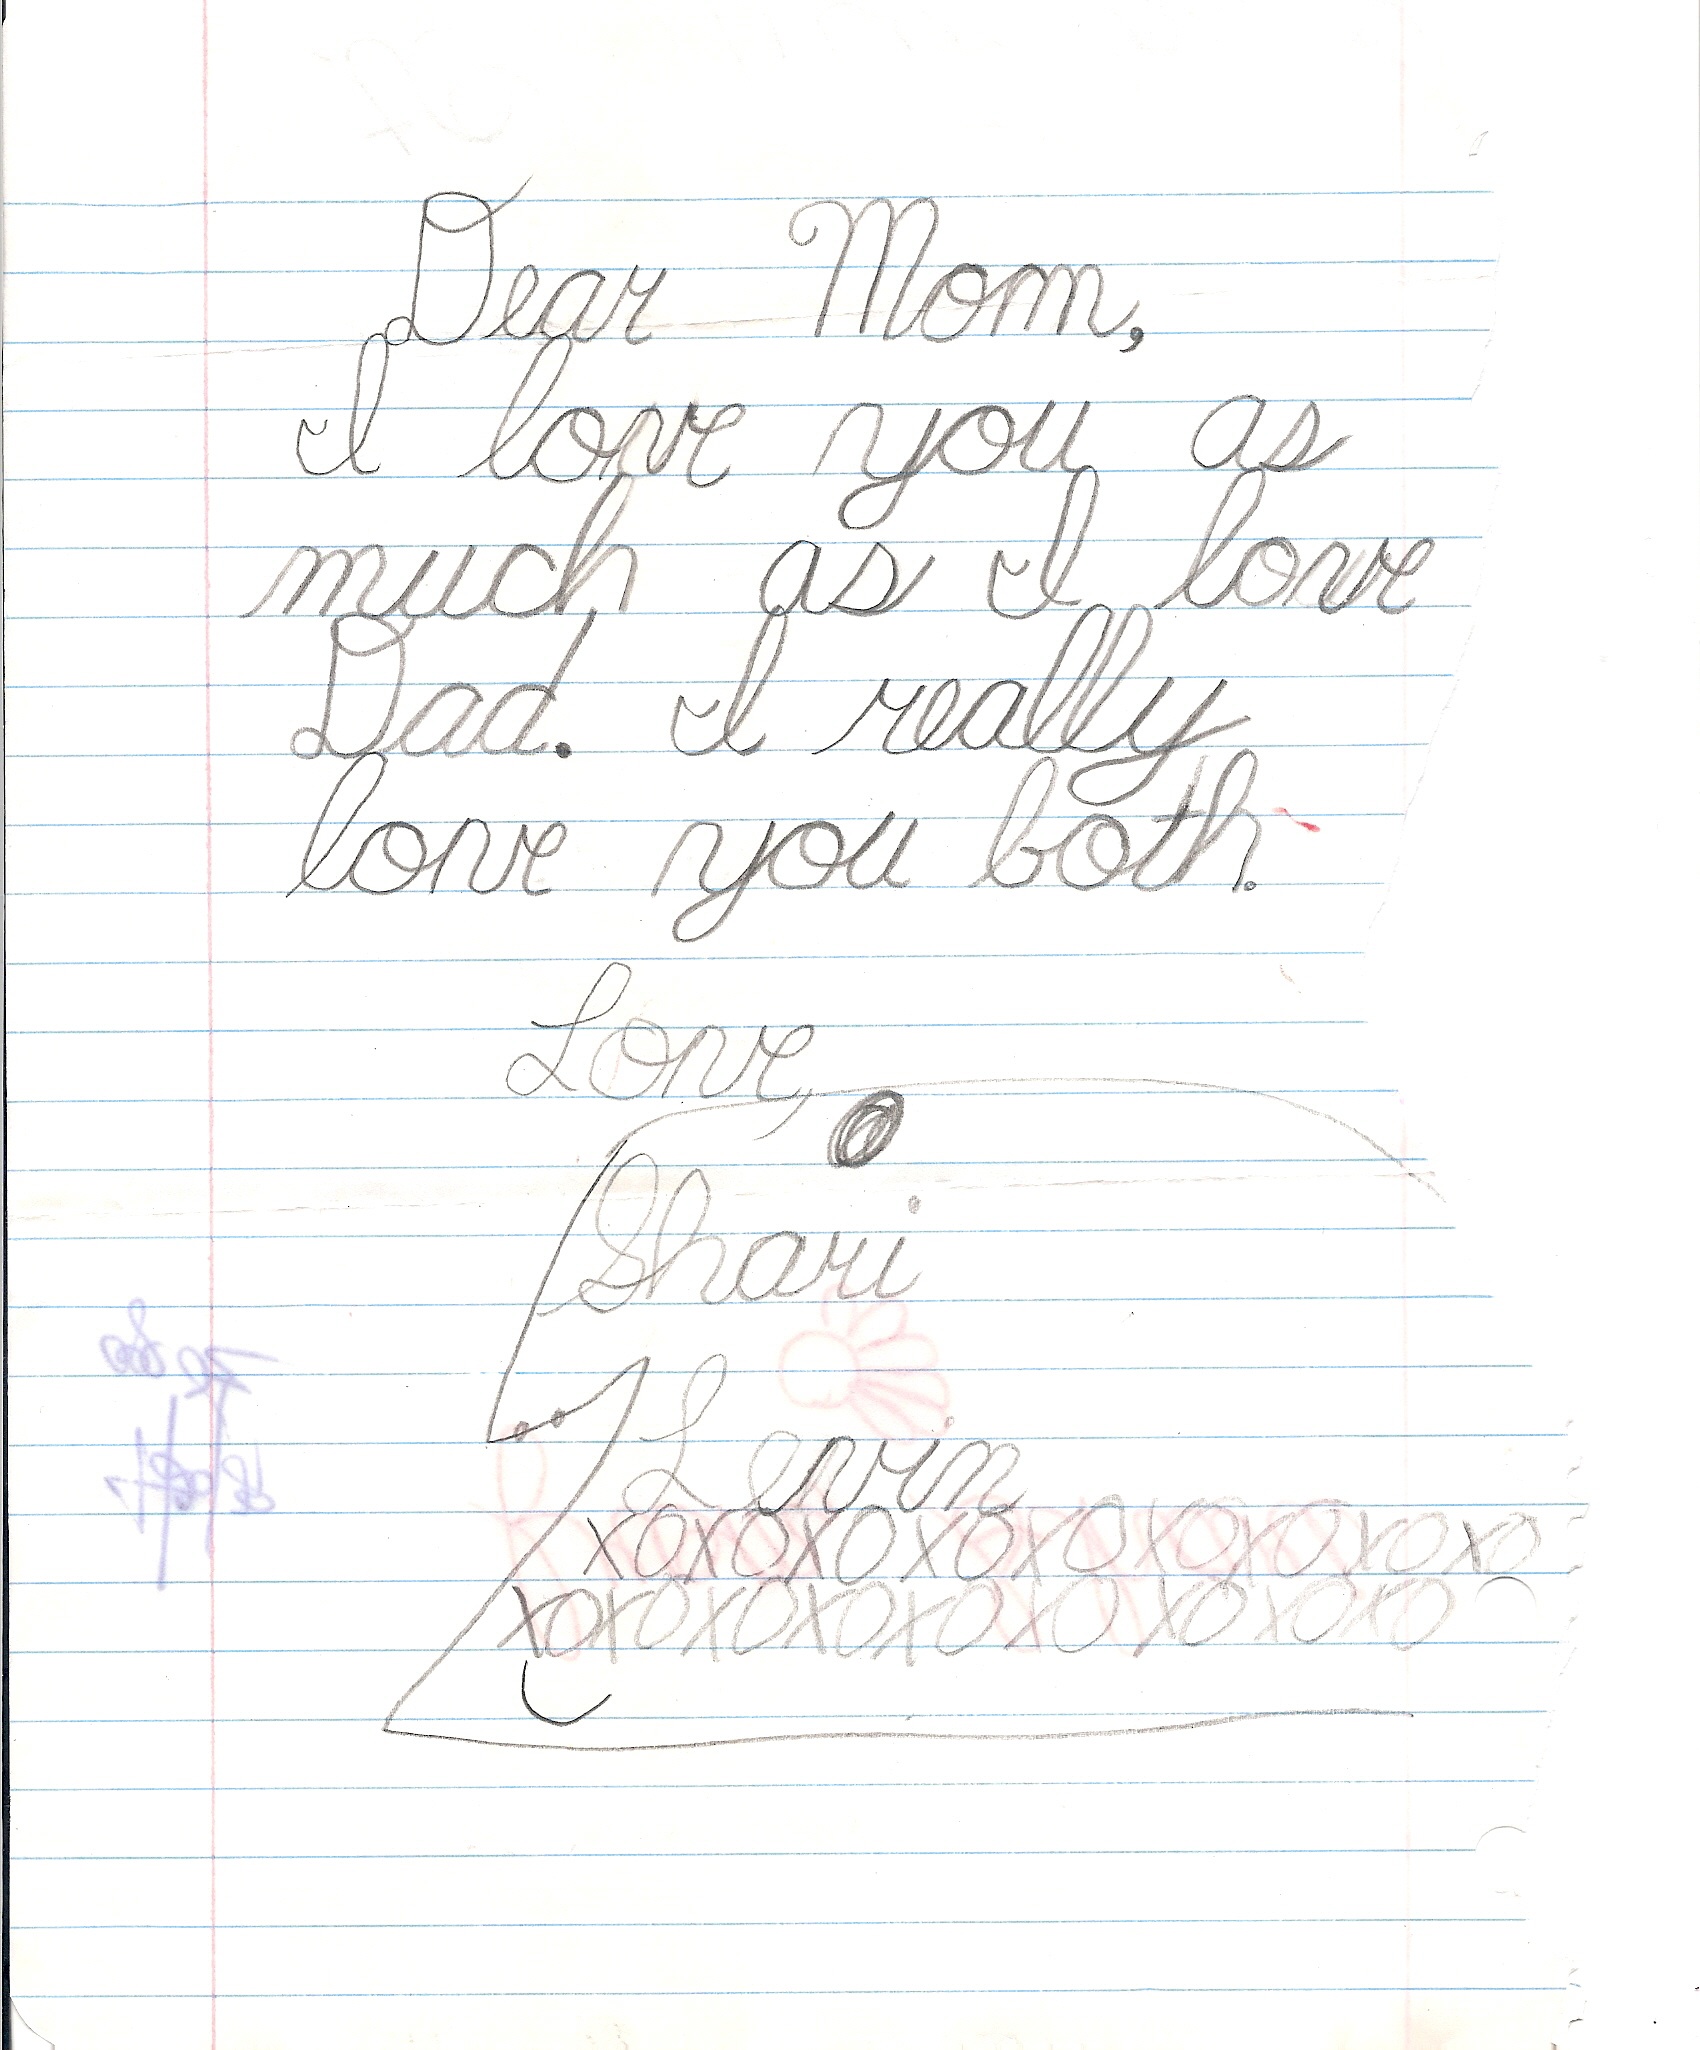 Dear Mom,
I love you as
much as I love
Dad. I really
love you both.
Love,
Shari
Levin
XOXOXOXOXOXOXOXOXO
XOXOXOXOXOXOXOXOXO